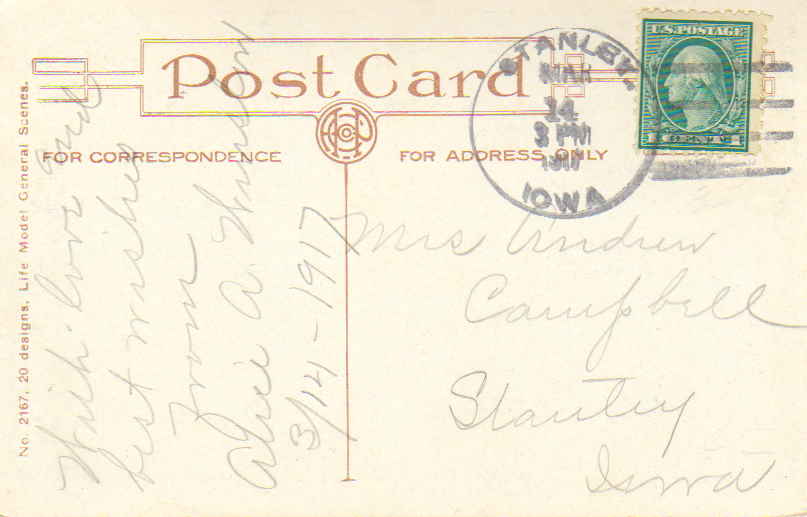 Post Card
FOR CORRESPONDENCE
FOR ADDRESS ONLY
STANLEY,
MAR
14
3 PM
1917
IOWA
U.S. POSTAGE
No. 2167, 20 designs, Life Model General Scenes.
With love and
best wishes
From
Alice A.
3/14-1917
Mrs Andrew
Campbell
Stanley
Iowa